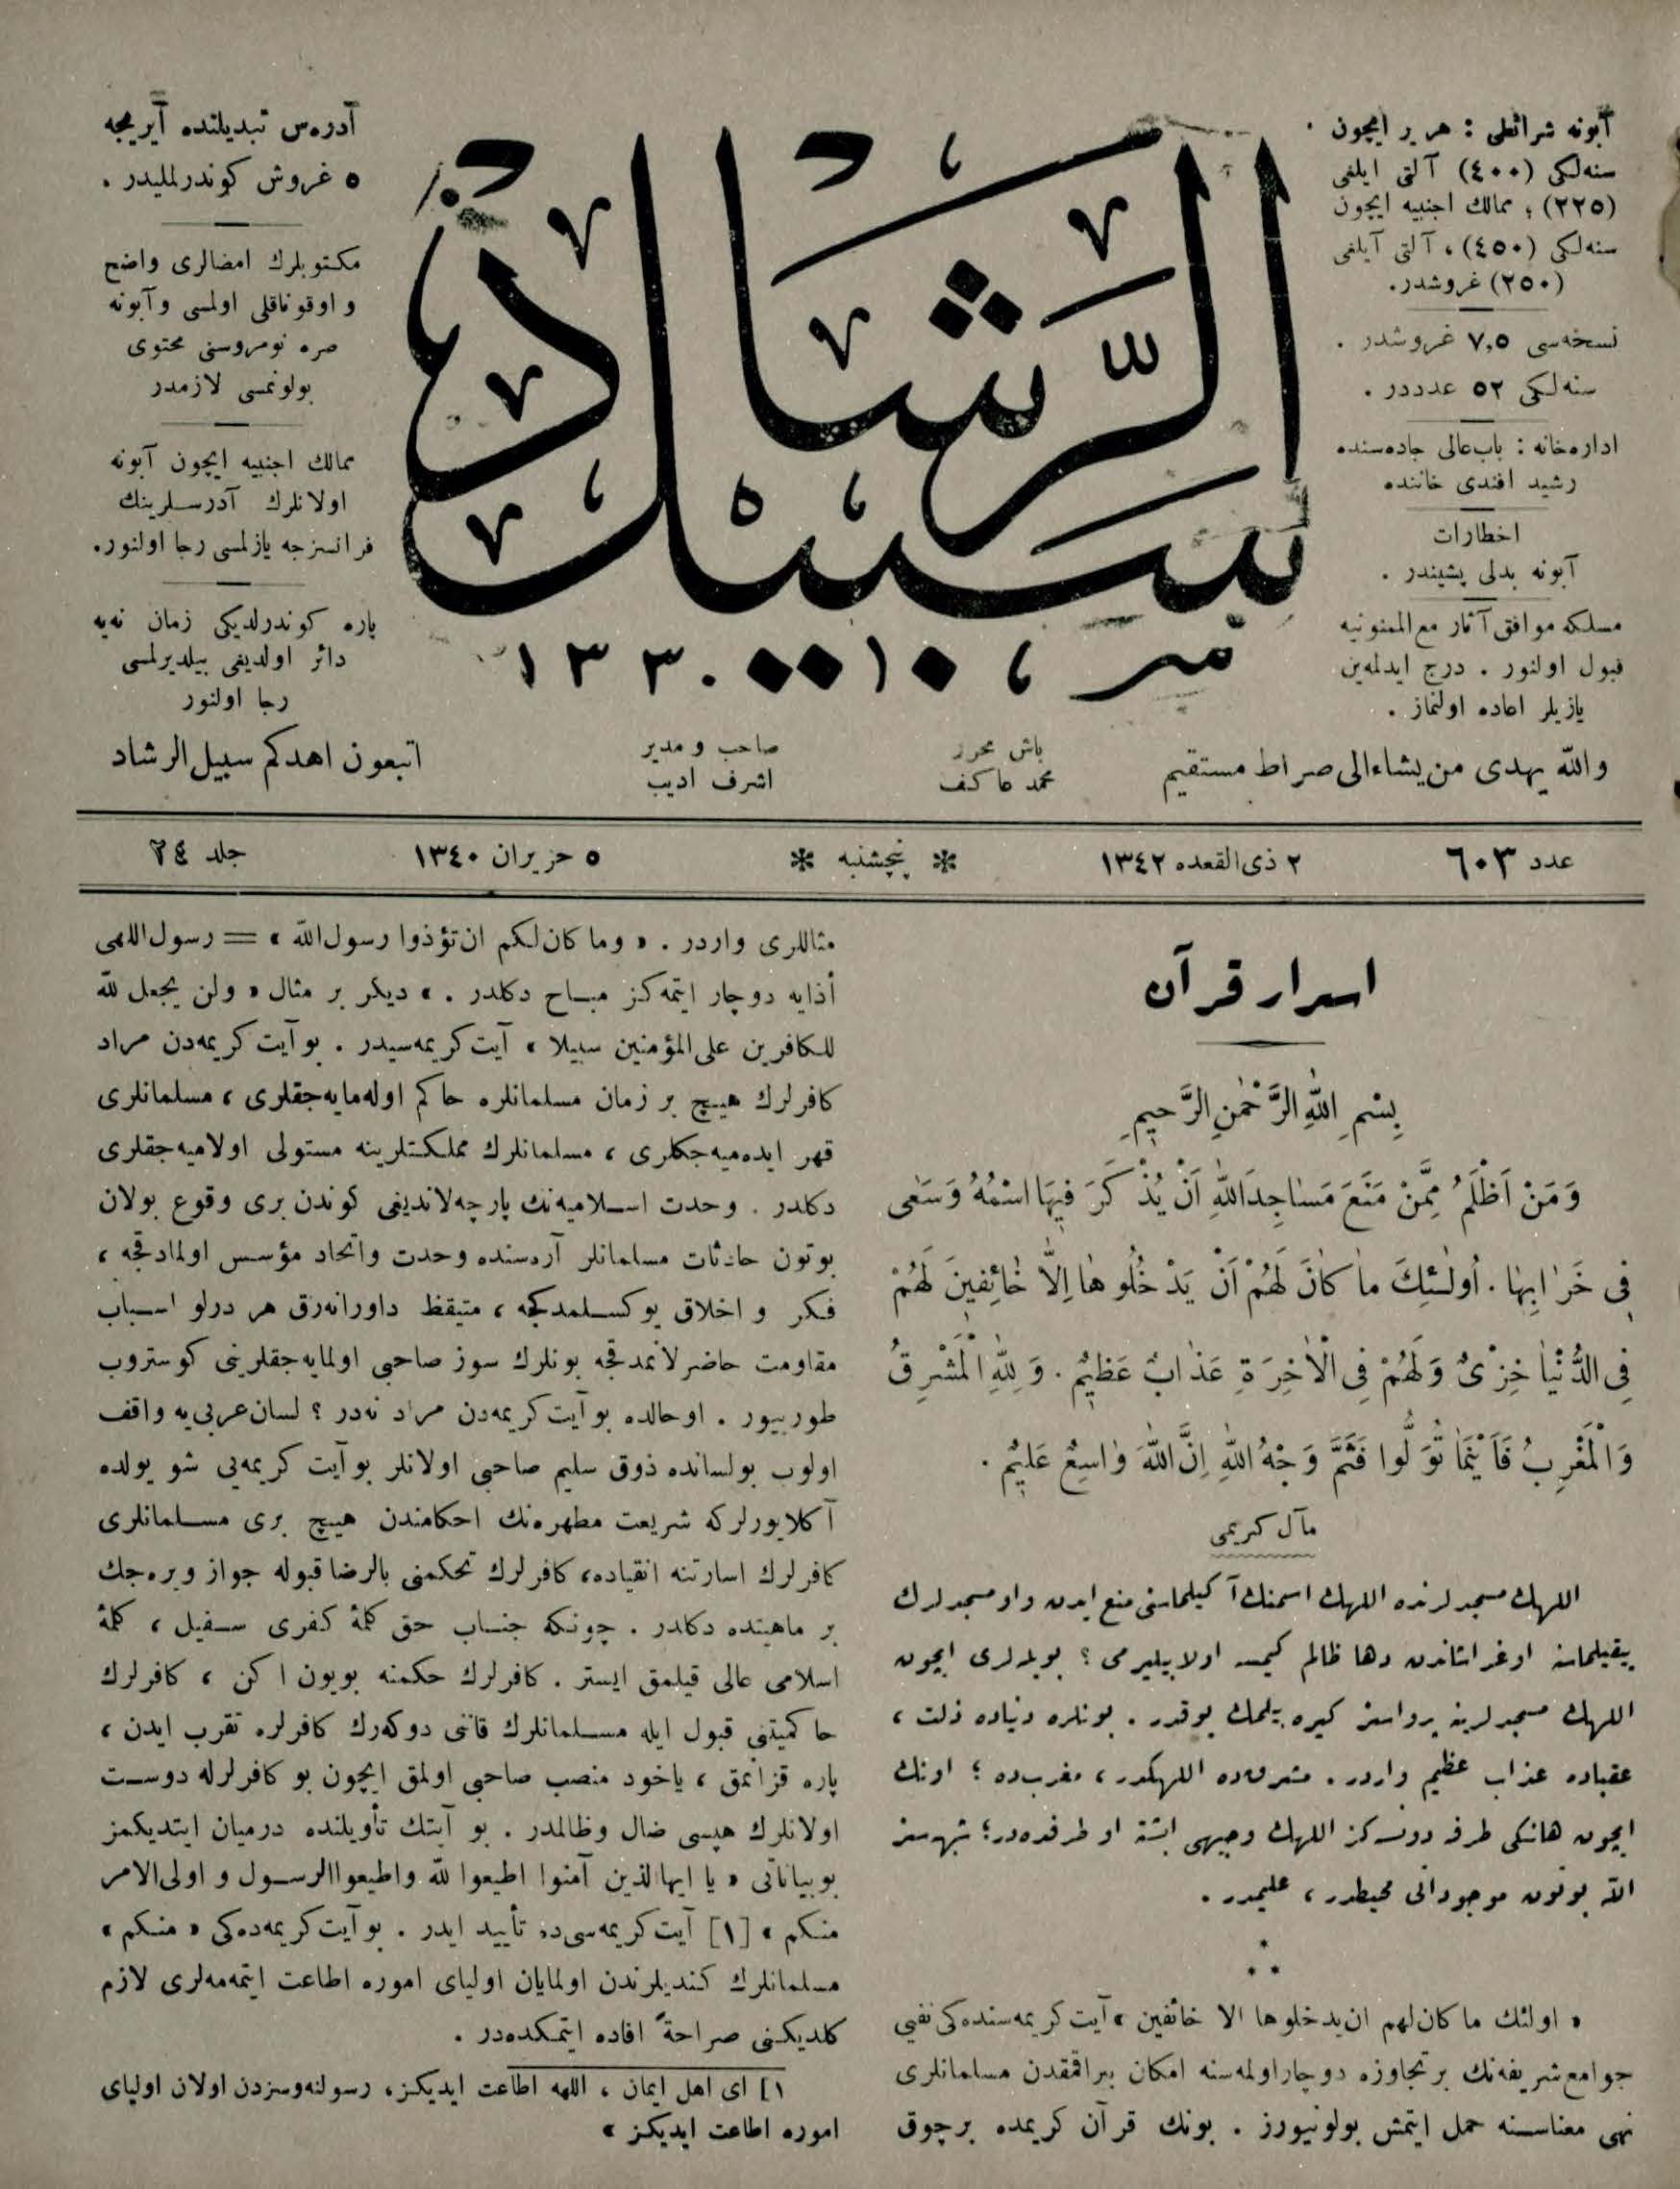 آبونه شرائطی : هر یر ایچون
سنه‌لکی (٤٠٠) آلتی ایلغی
(٢٢٥) ؛ ممالك اجنبیه ایچون
سنه‌لکی (٤٥٠) ، آلتی آیلغی
(٢٥٠) غروشدر.
نسخه‌سی ٧,٥ غروشدر .
سنه‌لکی ٥٢ عدددر .
اداره‌خانه : باب‌عالی جاده‌سنده
رشید افندی خاننده
اخطارات
آبونه بدلی پشیندر .
مسلکه موافق آثار مع‌الممنونیه
قبول اولنور . درج ایدلمه‌ین
یازیلر اعاده اولنماز .
سبیل الرشاد
آدره‌س تبدیلنده آیریجه
٥ غروش کوندرلملیدر .
مکتوبلرك امضالری واضح
و اوقوناقلی اولمسی و آبونه
صره نومروسنی محتوی
بولونمسی لازمدر
ممالك اجنبیه ایچون آبونه
اولانلرك آدرسلرینك
فرانسزجه یازلمسی رجا اولنور.
پاره کوندرلدیکی زمان نه‌یه
دائر اولدیغی بیلدیرلمسی
رجا اولنور
والله یهدی من یشاء الی صراط مستقیم
باش محرر
محمد عاکف
صاحب و مدیر
اشرف ادیب
اتبعون اهدکم سبیل الرشاد
عدد ٦٠٣
٢ ذی القعده ١٣٤٢
* پنجشنبه *
٥ حزیران ١٣٤٠
جلد ٢٤
اسرار قرآن
بِسْمِ اللّٰهِ الرَّحْمٰنِ الرَّحِیمِ
وَمَنْ اَظْلَمُ مِمَّنْ مَنَعَ مَسَاجِدَ اللّٰهِ اَنْ یُذْکَرَ فِیهَا اسْمُهُ وَسَعٰی
فِی خَرَابِهَا . اُولٰئِكَ مَا کَانَ لَهُمْ اَنْ یَدْخُلُوهَا اِلَّا خَائِفِینَ لَهُمْ
فِی الدُّنْیَا خِزْیٌ وَلَهُمْ فِی الْاٰخِرَةِ عَذَابٌ عَظِیمٌ . وَلِلّٰهِ الْمَشْرِقُ
وَالْمَغْرِبُ فَاَیْنَمَا تُوَلُّوا فَثَمَّ وَجْهُ اللّٰهِ اِنَّ اللّٰهَ وَاسِعٌ عَلِیمٌ .
مآل کریمی
اللهك مسجدلرنده اللهك اسمنك آکیلماسنی منع ایدن و او مسجدلرك
ییقیلماسنه اوغراشاندن دها ظالم کیمسه اولابیلیرمی ؟ بویله‌لری ایچون
اللهك مسجدلرینه پرواسز کیره‌بیلمك یوقدر . بونلره دنیاده ذلت ،
عقباده عذاب عظیم واردر . مشرق‌ده اللهکدر ، مغرب‌ده ؛ اونك
ایچون هانکی طرفه دونسه‌کز اللهك وجهی ایشته او طرفده‌در ؛ شبهه‌سز
الله بوتون موجوداتی محیطدر ، علیمدر .
* * *
« اولئك ما کان لهم ان یدخلوها الا خائفین » آیت کریمه‌سنده‌کی نفیی
جوامع شریفه‌نك بر تجاوزه دوچار اولمه‌سنه امکان بیراقمقدن مسلمانلری
نهی معناسنه حمل ایتمش بولونیورز . بونك قرآن کریمده برچوق
مثاللری واردر . « وما کان لکم ان تؤذوا رسول الله » = رسول اللهی
أذایه دوچار ایتمه‌کز مباح دکلدر . » دیکر بر مثال « ولن یجعل لله
للکافرین علی المؤمنین سبیلا » آیت کریمه‌سیدر . بو آیت کریمه‌دن مراد
کافرلرك هیچ بر زمان مسلمانلره حاکم اوله‌مایه‌جقلری ، مسلمانلری
قهر ایده‌میه‌جکلری ، مسلمانلرك مملکتلرینه مستولی اولامیه‌جقلری
دکلدر . وحدت اسلامیه‌نك پارچه‌لاندیغی کوندن بری وقوع بولان
بوتون حادثات مسلمانلر آره‌سنده وحدت واتحاد مؤسس اولمادقجه ،
فکر و اخلاق یوکسلمدکجه ، متیقظ داورانه‌رق هر درلو اسباب
مقاومت حاضرلانمدقجه بونلرك سوز صاحبی اولمایه‌جقلرینی کوستروب
طورییور . اوحالده بو آیت کریمه‌دن مراد نه‌در ؟ لسان عربی‌یه واقف
اولوب بولسانده ذوق سلیم صاحبی اولانلر بو آیت کریمه‌یی شو یولده
آکلایورلرکه شریعت مطهره‌نك احکامندن هیچ بری مسلمانلری
کافرلرك اسارتنه انقیاده، کافرلرك تحکمنی بالرضا قبوله جواز ویره‌جك
بر ماهیتده دکلدر . چونکه جناب حق کلمهٔ کفری سفیل ، کلمهٔ
اسلامی عالی قیلمق ایستر . کافرلرك حکمنه بویون اکن ، کافرلرك
حاکمیتنی قبول ایله مسلمانلرك قاننی دوکه‌رك کافرلره تقرب ایدن ،
پاره قزانمق ، یاخود منصب صاحبی اولمق ایچون بو کافرلرله دوست
اولانلرك هپسی ضال وظالمدر . بو آیتك تأویلنده درمیان ایتدیکمز
بو بیاناتی « یا ایها الذین آمنوا اطیعوا لله واطیعوا الرسول و اولی الامر
منکم » [١] آیت کریمه‌سی‌ده تأیید ایدر . بو آیت کریمه‌ده‌کی « منکم »
مسلمانلرك کندیلرندن اولمایان اولیای اموره اطاعت ایتمه‌مه‌لری لازم
کلدیکنی صراحةً افاده ایتمکده‌در .
١] ای اهل ایمان ، اللهه اطاعت ایدیکز، رسولنه‌وسزدن اولان اولیای
اموره اطاعت ایدیکز »